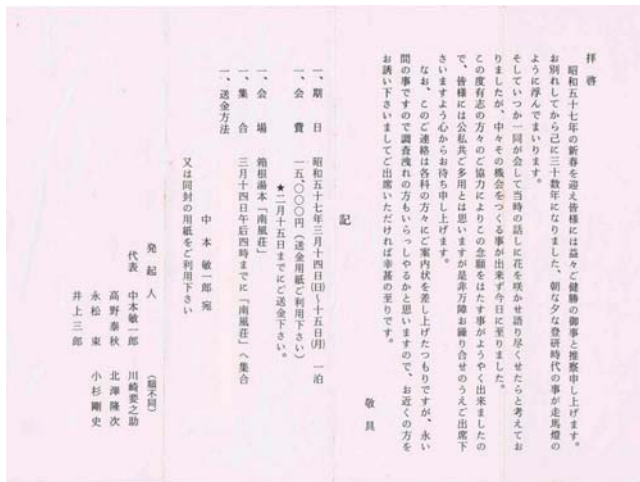 拝啓
昭和五十七年の新春を迎え皆様には益々ご健勝の御事と推察申し上げます。
お別れしてから已に三十数年になりました、朝な夕な登研時代の事が走馬燈の
ように浮んでまいります。
そしていつか一同が会して当時の話しに花を咲かせ語り尽くせたらと考えてお
りましたが、中々その機会をつくる事が出来ず今日に至りました。
この度有志の方々のご協力によりこの念願をはたす事がようやく出来ましたの
で、皆様には公私共ご多用とは思いますが是非万障お繰り合せのうえご出席下
さいますよう心からお待ち申し上げます。
なお、このご連絡は各科の方々にご案内状を差し上げたつもりですが、永い
間の事ですので調査洩れの方もいらっしやるかと思いますので、お近くの方を
お誘い下さいましてご出席いただければ幸甚の至りです。
敬具
記
一、期日 昭和五十七年三月十四日(日)~十五日(月) 一泊
一、会費 一五、〇〇〇円(送金用紙ご利用下さい)
★二月十五日までにご送金下さい。
一、会場 箱根湯本「南風荘」
一、集合 三月十四日午后四時までに「南風荘」へ集合
一、送金方法
中本敏一郎宛
又は同封の用紙をご利用下さい
発起人 (順不同)
代表 中本敏一郎 川崎要之助
高野泰秋 北澤隆次
永松東 小杉剛史
井上三郎